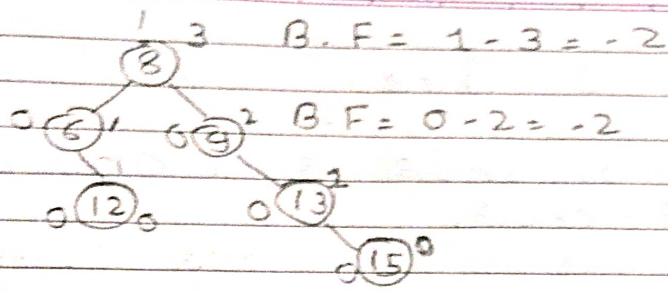 1 3 B.F = 1 - 3 = -2
8
0 6 1 0 9 2 B.F = 0 - 2 = -2
0 12 0 0 13 1
0 15 0